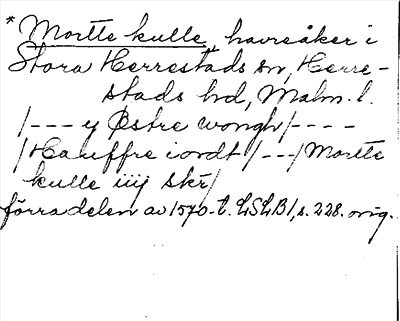 * Mortte kulle, havreåker i
Stora Herrestads sn, Herre-
stads hd, Malm. l.
/--- y Østre wongh/----
/Hauffre iordt/---/Mortte
kulle iiij skr/
förra delen av 1570-t. LSLB1, s. 228. orig.